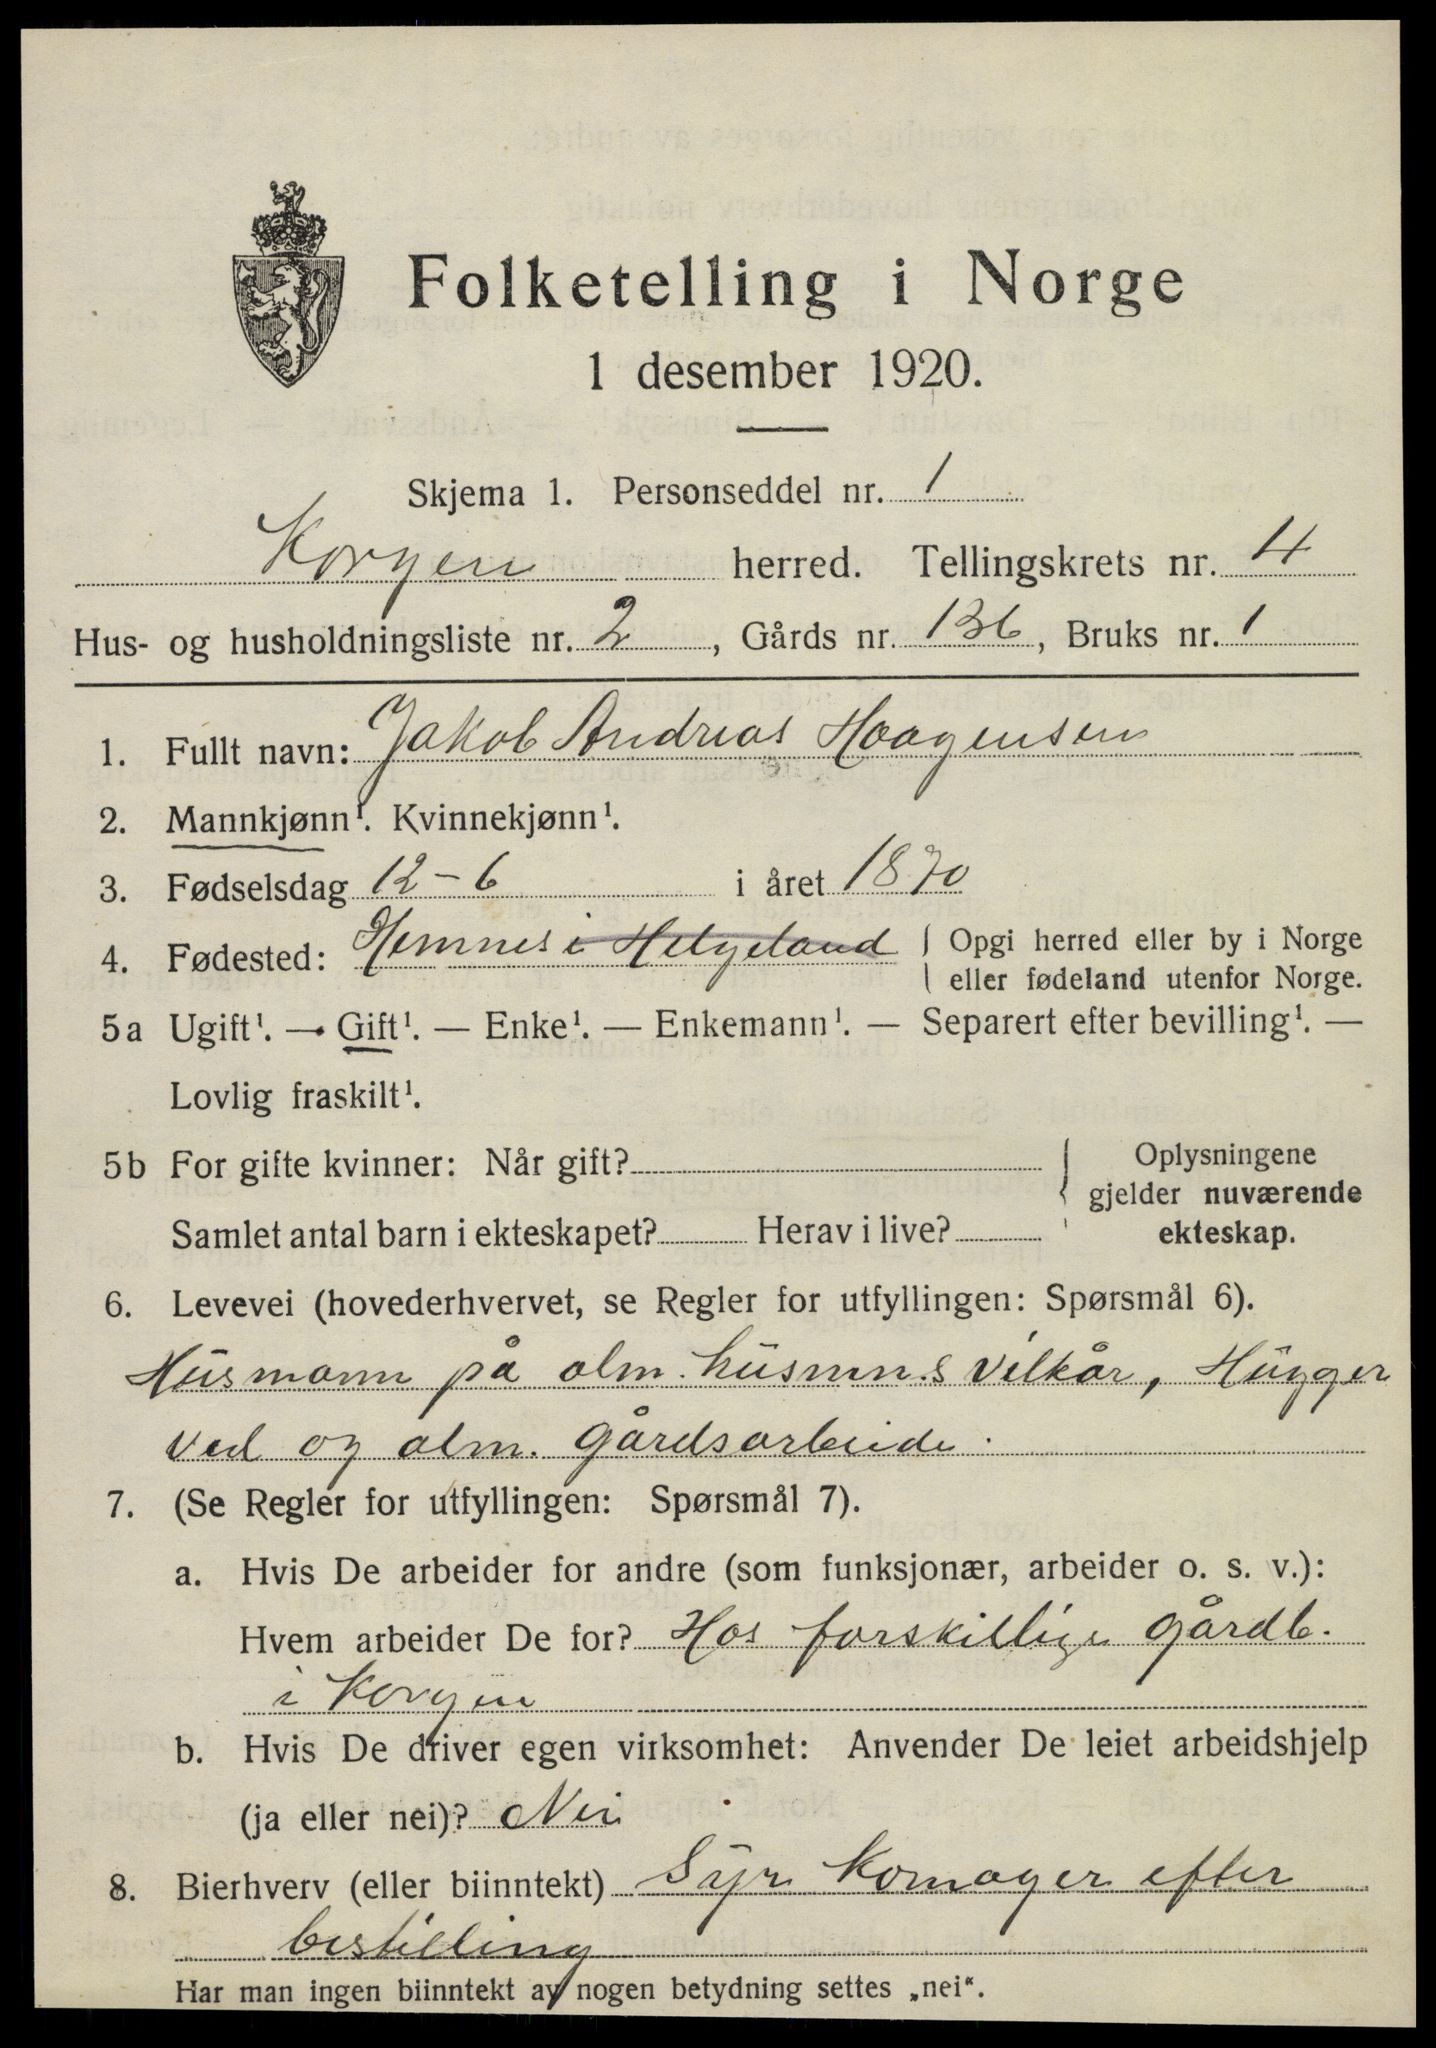 Folketelling i Norge
1 desember 1920.
Skjema 1. Personseddel nr. 1
Korgen herred. Tellingskrets nr. 4
Hus- og husholdningsliste nr. 2, Gårds nr. 136, Bruks nr. 1
1. Fullt navn: Jakob Andreas Haagensen
2. Mannkjønn¹. Kvinnekjønn¹.
3. Fødselsdag 12-6 i året 1870
4. Fødested: Hemnes i Helgeland { Opgi herred eller by i Norge
eller fødeland utenfor Norge.
5a Ugift¹. — Gift¹. — Enke¹. — Enkemann¹. — Separert efter bevilling¹. —
Lovlig fraskilt¹.
5b For gifte kvinner: Når gift?
Samlet antal barn i ekteskapet? Herav i live?
Oplysningene
gjelder nuværende
ekteskap.
6. Levevei (hovederhvervet, se Regler for utfyllingen: Spørsmål 6).
Husmann på alm. husmn.s vilkår, Hugger
ved og alm. gårdsarbeide.
7. (Se Regler for utfyllingen: Spørsmål 7).
a. Hvis De arbeider for andre (som funksjonær, arbeider o. s. v.):
Hvem arbeider De for? Hos forskillige gårdb.
i Korgen
b. Hvis De driver egen virksomhet: Anvender De leiet arbeidshjelp
(ja eller nei)? Nei
8. Bierhverv (eller biinntekt) Syr Komager efter
bestilling
Har man ingen biinntekt av nogen betydning settes „nei“.